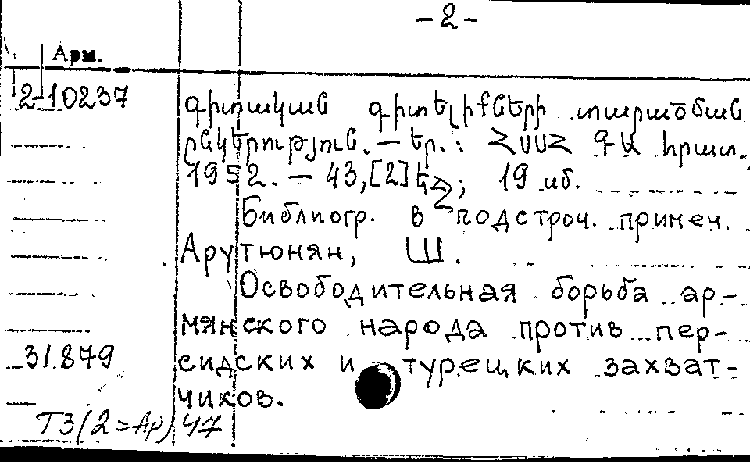 -2-
Арм.
2-10237
գիտական գիտելիքների տարածման
ընկերություն. — Եր.: ՀՍՍՀ ԳԱ հրատ.,
1952. — 43,[2]եջ; 19 սմ.
Библиогр. в подстроч. примеч.
Арутюнян, Ш.
Освободительная борьба ар-
мянского народа против пер-
31.879
сидских и турецких захват-
чиков.
Т3(2=Ар)47